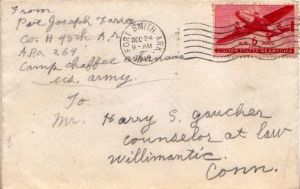 From
Pvt Joseph Farra
Co. H 48th A.
APO 264
Camp chaffee arkansas
U.S. army.
FORT SMITH, ARK
DEC 24
9-AM
AIR 6¢ MAIL
UNITED STATES OF AMERICA
To
Mr. Harry S. gaucher
counselor at law
Willimantic
Conn.